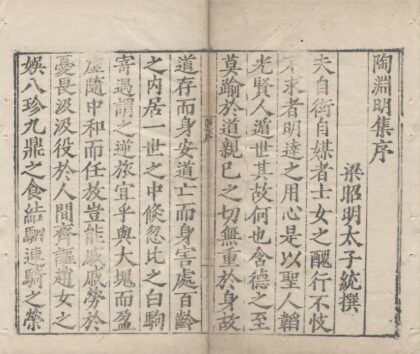 陶淵明集序
梁昭明太子統撰
夫自衒自媒者士女之醜行不忮
不求者明達之用心是以聖人韜
光賢人遁世其故何也含德之至
莫踰於道親已之切無重於身故
道存而身安道亡而身害處百齡
之内居一世之中倐忽比之白駒
寄遇謂之逆旅宜乎與大塊而盈
虛隨中和而任放豈能戚戚勞於
憂畏汲汲役於人間齊謳趙女之
娛八珍九鼎之食結駟連騎之榮